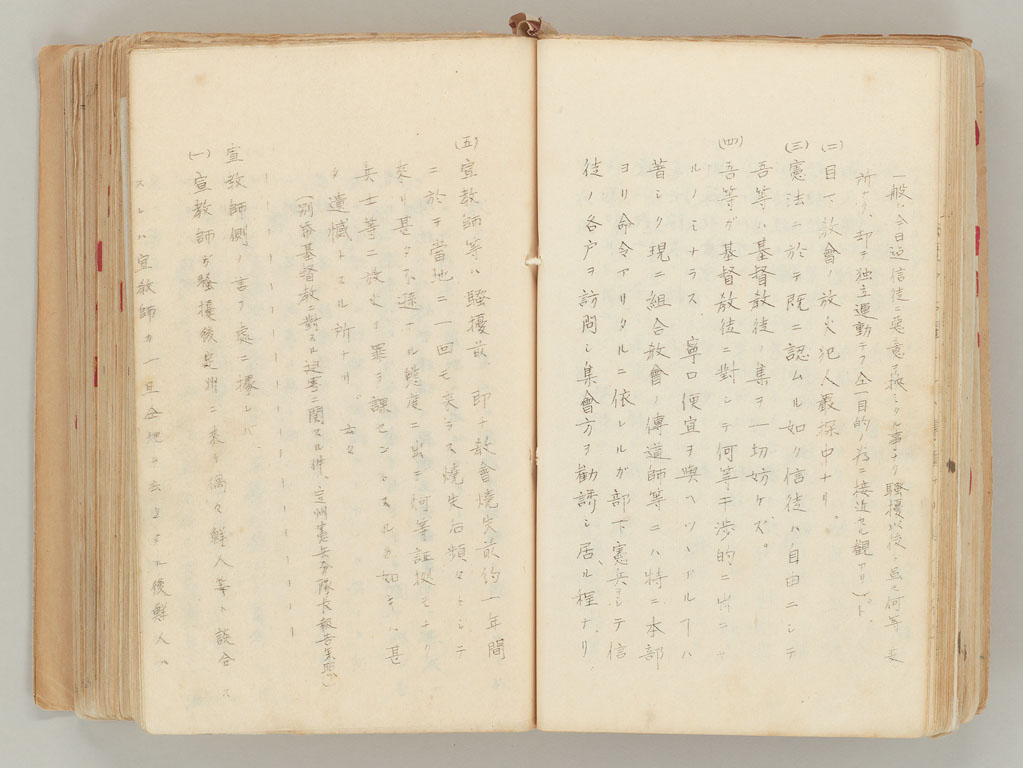 一般ハ今日迄信徒ニ惡意ヲ挾ミタル事ナク騷擾以後ニ並ニ何等
所ナク、却テ独立運動テフ仝一目的ノ為ニ接近セル觀アリ）ト。
(二)目下教會ノ放火犯人嚴探中ナリ。
(三)憲法ニ於テ既ニ認ムル如ク信徒ハ自由ニシテ
吾等ハ基督教徒ノ集ヲ一切妨ケズ。
(四)吾等ガ基督教徒ニ對シテ何等干渉的ニ出
ルノミナラス、寧ロ便宜ヲ與ヘツヽアルコトハ
昔シク現ニ組合教會ノ傳道師等ニハ特ニ本部
ヨリ命令アリタルニ依レルガ部下憲兵ヲシテ信
徒ノ各戸ヲ訪問シ集會方ヲ勸誘シ居ル程ナリ。
(五)宣教師等ハ騷擾前、即チ教會燒失前約一年間
ニ於テ當地ニ一回モ來ラス燒失后頻々トシテ
來リ甚タ不遜ナル態度ニ出テ何等証拠モナク
兵士等ニ放火ノ罪ヲ課セントスルガ如キハ甚
タ遺憾トスル所ナリ。云々
（別冊基督教ニ對スル迫害ニ関スル件、宣州憲兵分隊長報告参照）
宣教師側ノ言フ處ニ據レバ
(一)宣教師ガ騷擾後定州ニ來リ偶々鮮人等ト談合ス
スレハ宣教師カ一旦仝地ヲ去ルヤ後鮮人ハ